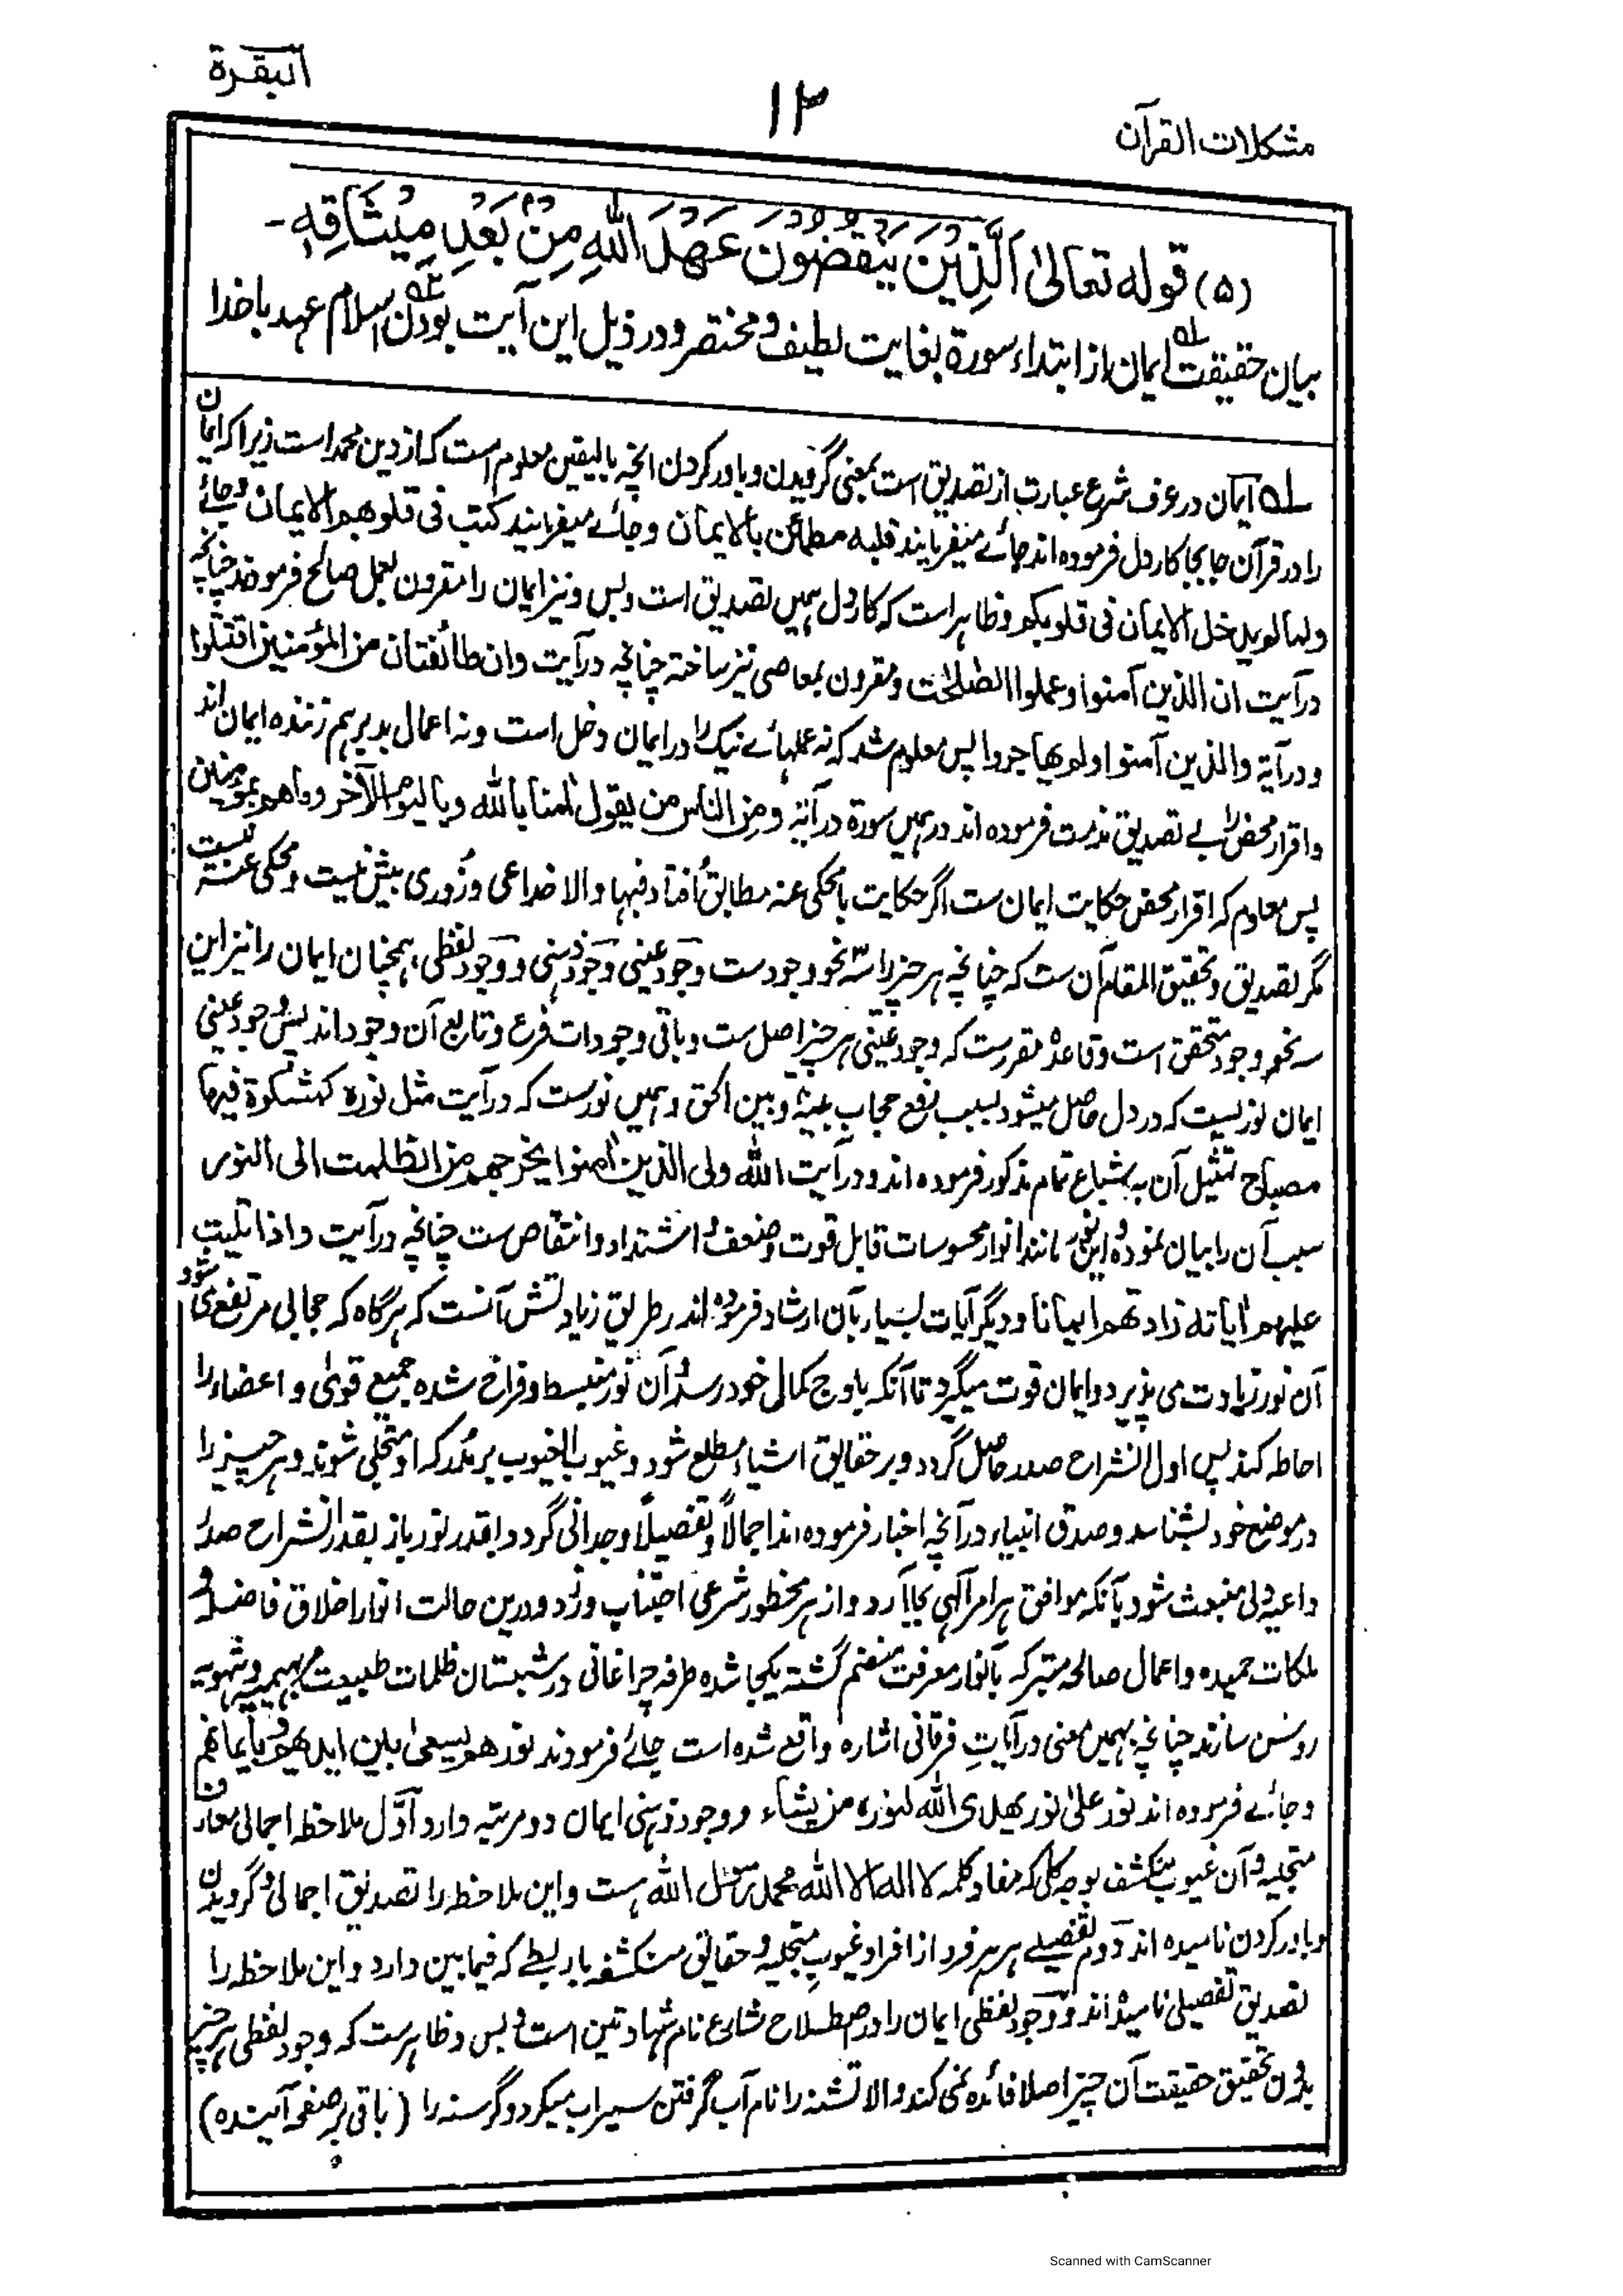 البقرة
۱۳
مشکلات القرآن
(۵) قوله تعالىٰ اَلَّذِيْنَ يَنْقُضُوْنَ عَهْدَ اللهِ مِنْ بَعْدِ مِيْثَاقِهٖ -
بیان حقیقت ۱ه ایمان از ابتداء سورة بغایت لطیف و مختصر و در ذیل این آیت بودن ۲ه اسلام عهد باخدا
۱ه ایمان در عرف شرع عبارت از تصدیق است بمعنی گرویدن و باور کردن انچه بالیقین معلوم است که از دین محمد است زیرا که ایمان
را در قرآن جا بجا کار دل فرموده اند جائے میفرمایند قلبه مطمئن بالایمان وجائے میفرمایند کتب فی قلوبهم الایمان وجائے
ولما یدخل الایمان فی قلوبکم وظاہراست که کار دل ہمیں تصدیق است وبس ونیز ایمان را مقرون بعمل صالح فرمودند چنانچه
درآیت ان الذین آمنوا وعملوا الصٰلحٰت ومقرون بمعاصی نیز ساخته چنانچه درآیت وان طائفتان من المؤمنین اقتتلوا
و درآیة والذین آمنوا ولم یهاجروا پس معلوم شد که نه عملہائے نیک را در ایمان دخل است ونه اعمال بد برہم زننده ایمان اند
واقرار محض را بے تصدیق مذمت فرموده اند در ہمیں سورة درآیة ومن الناس من یقول اٰمنا بالله وبالیوم الآخر وماهم بمؤمنین
پس معلوم که اقرار محض حکایت ایمان ست اگر حکایت بامحکی عنه مطابق اُفتاد فبہا والا خداعی وزُوری بیش نیست ومحکی عنه نیست
مگر تصدیق وتحقیق المقام آن ست که چنانچه ہر چیز را سه نحو وجودست وجود عینی وجود ذہنی و وجود لفظی، ہمچنان ایمان را نیز این
سه نحو وجود متحقق است وقاعده مقررست که وجود عینی ہر چیز اصل ست وباقی وجودات فرع وتابع آن وجود اند پس وجود عینی
ایمان نوریست که در دل حاصل میشود بسبب رفع حجاب بینه وبین الحق وہمیں نورست که درآیت مثل نوره کمشکوة فیها
مصباح تمثیل آن به اشباع تمام مذکور فرموده اند و درآیت الله ولی الذین اٰمنوا یخرجهم من الظلمت الی النور
سبب آن را بیان نموده و این نور مانند انوار محسوسات قابل قوت وضعف و اشتداد وانتقاص ست چنانچه درآیت واذا تلیت
علیهم اٰیاته زادتهم ایمانا و دیگر آیات بسیار بآن ارشاد فرموده اند و طریق زیادتش آنست که ہرگاه که حجابی مرتفع می شود
آن نور زیادت می پذیرد و ایمان قوت میگیرد تا آنکه باوج کمال خود رسد و آن نور منبسط وفراخ شده جمیع قویٰ و اعضاء را
احاطه کند پس اول انشراح صدر حاصل گردد و بر حقایق اشیاء مطلع شود وغیوب الغیوب بر مدرکه او متجلی شوند وہر چیز را
در موضع خود بشناسد وصدق انبیاء درآنچه اخبار فرموده اند اجمالاً وتفصیلاً وجدانی گردد وبقدر نور باز بقدر انشراح صدر
داعیه دلی منبعث شود بآنکه موافق ہر امر آلہی بجا آرد و از ہر محظور شرعی اجتناب ورزد ودرین حالت انوار اخلاق فاضله و
ملکات حمیده واعمال صالحه متبرکه بانوار معرفت منضم گشته یکجا شده طرفه چراغانی درشبستان ظلمات طبیعت بہیمیه وشہویه
روشن سازند چنانچه بہمیں معنی درآیاتِ فرقانی اشاره واقع شده است جائے فرمودند نورهم یسعیٰ بین ایدیهم وبایمانهم
وجائے فرموده اند نور علیٰ نور یهدی الله لنوره من یشاء و وجود ذہنی ایمان دو مرتبه دارد اوّل ملاحظه اجمالی معارف
متجلیه و آن غیوب منکشفه بوجه کلی که مفاد کلمه لا اله الا الله محمد رسول الله است واین ملاحظه را تصدیق اجمالی وگرویدن
وباور کردن نامیده اند دوم تفصیلے ہر ہر فرد از افراد غیوبِ متجلیه وحقایق منکشفه بار بطے که فیمابین دارد واین ملاحظه را
تصدیق تفصیلی نامیده اند و وجود لفظی ایمان را در اصطلاح شارع نام شہادتین است و بس وظاہرست که وجود لفظی ہر چیز
بدون تحقیق حقیقت آن چیز اصلا فائده نمی کند والا تشنه را نام آب گرفتن سیراب میکرد وگرسنه را (باقی بر صفحه آینده)
Scanned with CamScanner